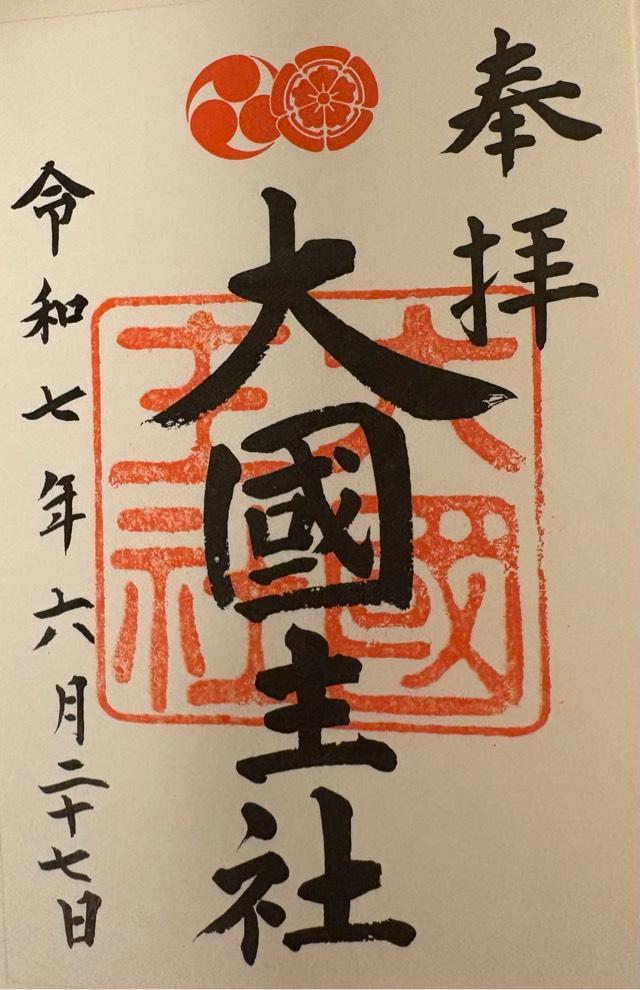 奉拝
大國主社
大國主社
令和七年六月二十七日